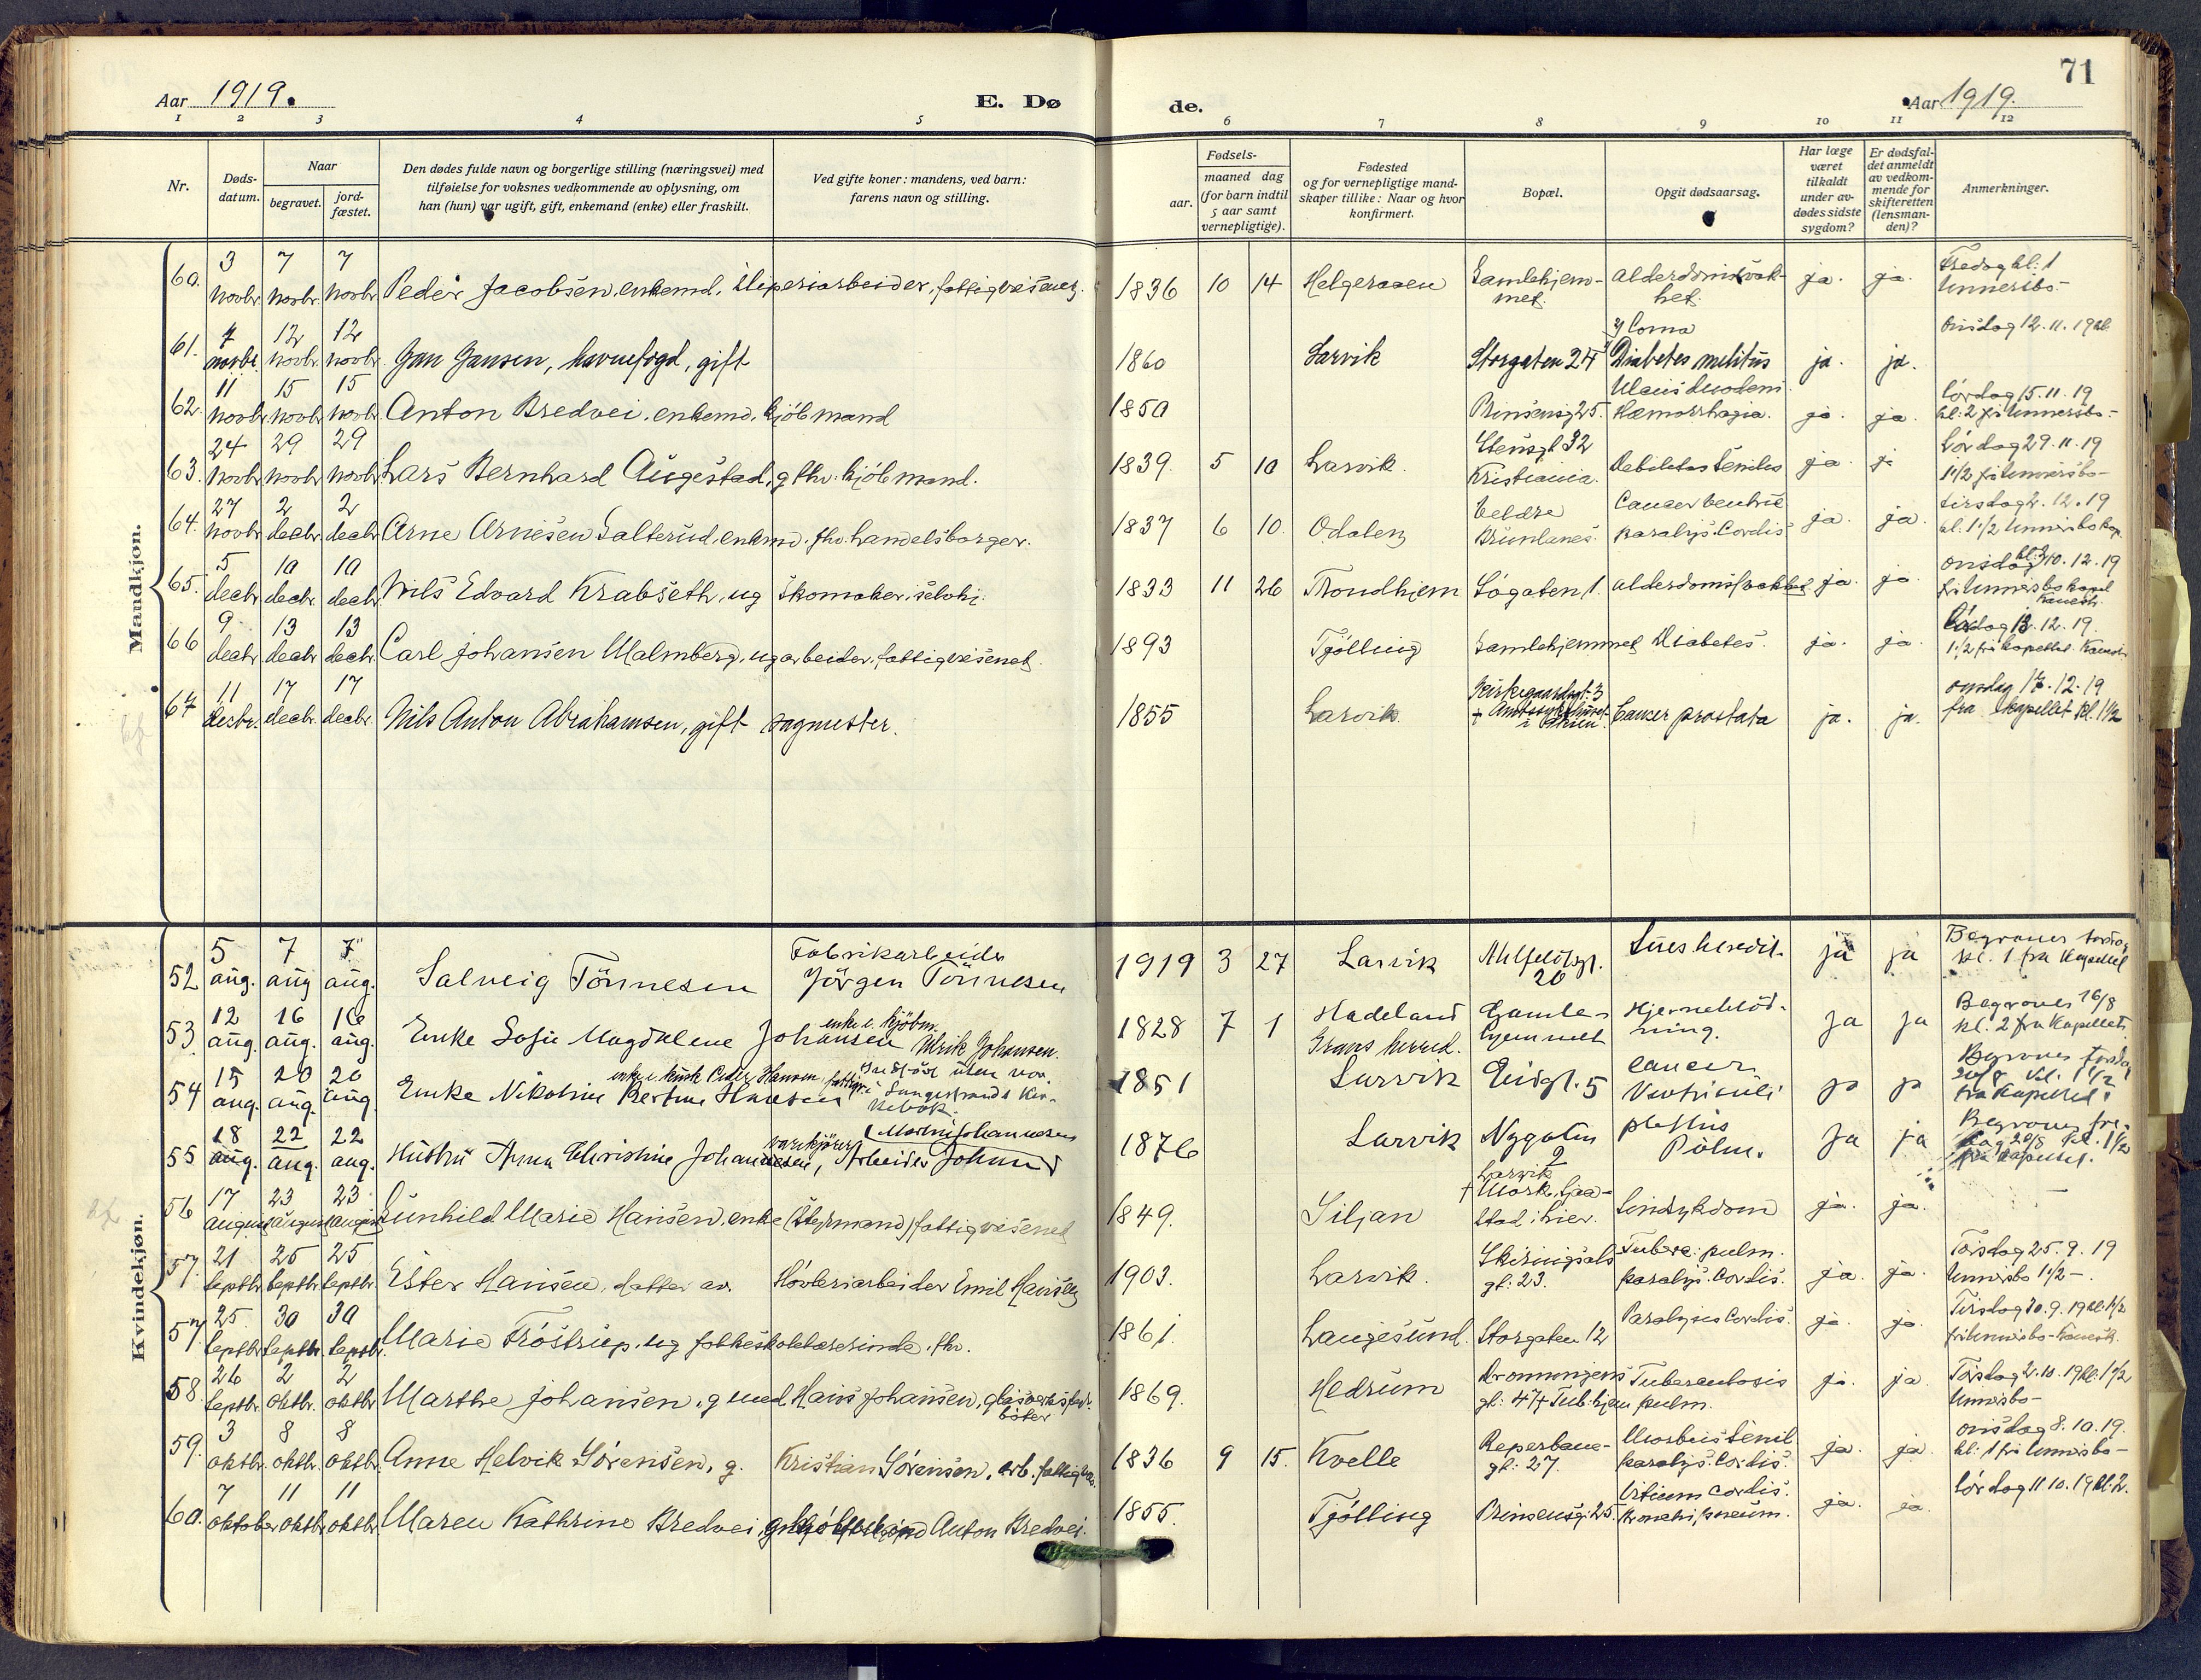 71
Aar 1919.
E. Dø
de.
Aar 1919.
1 2 3 4 5 6 7 8 9 10 11 12
Nr.
Døds-
datum.
Naar
begravet.
jord-
fæstet.
Den dødes fulde navn og borgerlige stilling (næringsvei) med
tilføielse for voksnes vedkommende av oplysning, om
han (hun) var ugift, gift, enkemand (enke) eller fraskilt.
Ved gifte koner: mandens, ved barn:
farens navn og stilling.
Fødsels-
aar.
maaned dag
(for barn indtil
5 aar samt
vernepligtige).
Fødested
og for vernepligtige mand-
skaper tillike: Naar og hvor
konfirmert.
Bopæl.
Opgit dødsaarsag.
Har læge
været
tilkaldt
under av-
dødes sidste
sygdom?
Er dødsfal-
det anmeldt
av vedkom-
mende for
skifteretten
(lensman-
den)?
Anmerkninger.
Mandkjøn.
60. 3 novbr. 7 novbr. 7 novbr. Peder Jacobsen, enkemd, sliperiarbeider, fattigvesenet. 1836 10 14 Helgeroaen Gamlehjem-
met. alderdomssvak-
het. ja. ja. Fredag kl. 1
Unnersbo-
61. 7 novbr. 12 novbr. 12 novbr. Jan Jansen, havnefogd, gift 1860 Larvik Storgaten 24 Coma
Diabetes melitus ja. ja. Onsdag 12.11.19 kl
62. 11 novbr. 15 novbr. 15 novbr. Anton Bredvei, enkemd. kjöbmand 1850 Prinsensg 25. Ulcus duodem.
Hæmorrhagia. ja. ja. lördag 15.11.19
kl. 2 fr. Unnersbo-
63. 24 novbr. 29 novbr. 29 novbr. Lars Bernhard Augestad, g fhv. kjöbmand. 1839. 5 10 Larvik. Stensgt 32
Kristiania. Debilitas senilis ja. ja Lördag 29.11.19
1 1/2 fr. Unnersbo-
64. 27 novbr. 2 decbr. 2 decbr. Arne Arnesen Salterud, enkmd. fhv. handelsborger. 1837 6 10. Odalen Veldre
Brunlanes. Cancer ventric
paralys. Cordis ja. ja. tirsdag 2.12.19
kl. 1 1/2 Unnersbo kap.
65. 5 decbr. 10 decbr. 10 decbr. Nils Edvard Krabseth, ug skomaker, 1833 11 26 Trondhjem Sögaten 1. alderdomssvakhet ja. ja. onsdag 10.12.19
fr. Unnersbo kapel
66 9 decbr. 13 decbr. 13 decbr. Carl Johansen Malmberg, ug arbeider, fattigvesenet. 1893 Tjölling Gamlehjemmet Diabetes. ja. ja. Lördag 13.12.19.
1 1/2 fra kapellet.
67 11 decbr. 17 decbr. 17 decbr. Nils Anton Abrahamsen, gift sagmester. 1855 Larvik Kirkegaardsgt. 3
+ Amtssykehuset Cancer prostata ja. ja. onsdag 17.12.19
fra kapellet kl. 1 1/2
Kvindekjøn.
52 5 aug. 7 aug 7 aug. Solveig Tönnesen Fabrikarbeider
Jörgen Tönnesen 1919 3 27 Larvik Ahlfeldtsgt.
20 Lues heredit. ja ja Begraves
kl. 1 fra Kapellet
53 12 aug. 16 aug. 16 aug. Enke Sofie Magdalene Johansen enke e. kjöbm.
Ulrik Johansen. 1828 7 1 Hadeland
Grans herred. Gamle-
hjemmet Hjerneblöd-
ning. ja ja Begraves 16/8
kl. 2 fra Kapellet.
54 15 aug. 20 aug. 20 aug. Enke Nikoline Bertine Hansen Indfört
Langestrands Kir-
kebok. 1851 Larvik Eidsgt. 5 cancer
Ventriculi ja ja Begraves
20/8 kl. 1 1/2
fra Kapellet.
55 18 aug. 22 aug. 22 aug. Hustru Anna Christine Johannesen, varekjörer
Arbeider 1876 Larvik Nygaten
2 phthis
Pölm. ja ja Begraves fre-
dag kl. 1 1/2
fra Kapellet.
56 17 august 23 august 23 august Gunhild Marie Hansen, enke (styrmand) fattigvesenet 1849. Siljan Larvik Sindsykdom ja. ja.
57. 21 septbr. 25 septbr. 25 septbr. Ester Hansen, datter av. Hövleriarbeider Emil Hansen 1903. Larvik. Skiringsals
gt. 23. Tuberc. pulm.
paralys. Cordis. ja. ja. Torsdag 25.9.19
Unnersbo 1 1/2 -.
57 25. septbr. 30 septbr. 30 septbr. Marie Fröstrup, ug folkeskolelærerinde, fhv. 1861. Langesund. Storgaten 12 Paralysis Cordis. ja. ja. Tirsdag 30.9.19 kl. 1 1/2
fr. Unnersbo-
58 26 septbr. 2 oktbr. 2 oktbr. Marthe Johansen, g med Hans Johansen, 1869. Hedrum Dronningens
gt. 47 + Tub. hjem Tuberculosis
pulm. ja. ja. Torsdag 2.10.19 kl. 1 1/2
Unnersbo-
59. 3 oktbr. 8 oktbr. 8 oktbr. Anne Helvik Sörensen, g. Kristian Sörensen, arb. 1836 9 15. Kvelle Reperbane-
gt. 27. Morbus Senil
paralys. Cordis. ja. ja. onsdag 8.10.19.
kl. 1 fr. Unnersbo-
60. 7 oktober 11 oktbr. 11 oktbr. Maren Kathrine Bredvei Anton Bredvei. 1855. Tjölling Prinsensg. 25. Vitium cordis.
ja. ja. lördag 11.10.19 kl. 2.